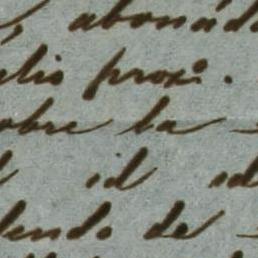 abonad
lio proxº.
obre la
id id
lendo de